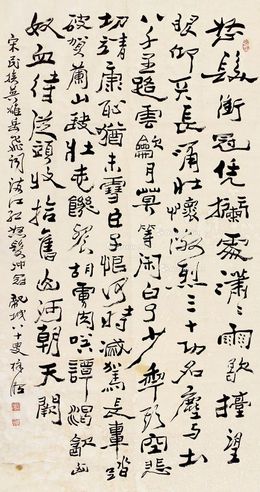 怒髮衝冠凭攔處瀟瀟雨歇擡望
眼仰天長嘯壯懷激烈三十功名塵与土
八千里路雲龢月莫等閑白了少年頭空悲
切靖康恥猶未雪臣子恨何時滅駕長車踏
破賀蘭山缺壯志饑餐胡虜肉笑譚渴飲匈
奴血待從頭收拾舊山河朝天闕
宋民族英雄岳飛詞滿江紅怒髮冲冠 八十叟